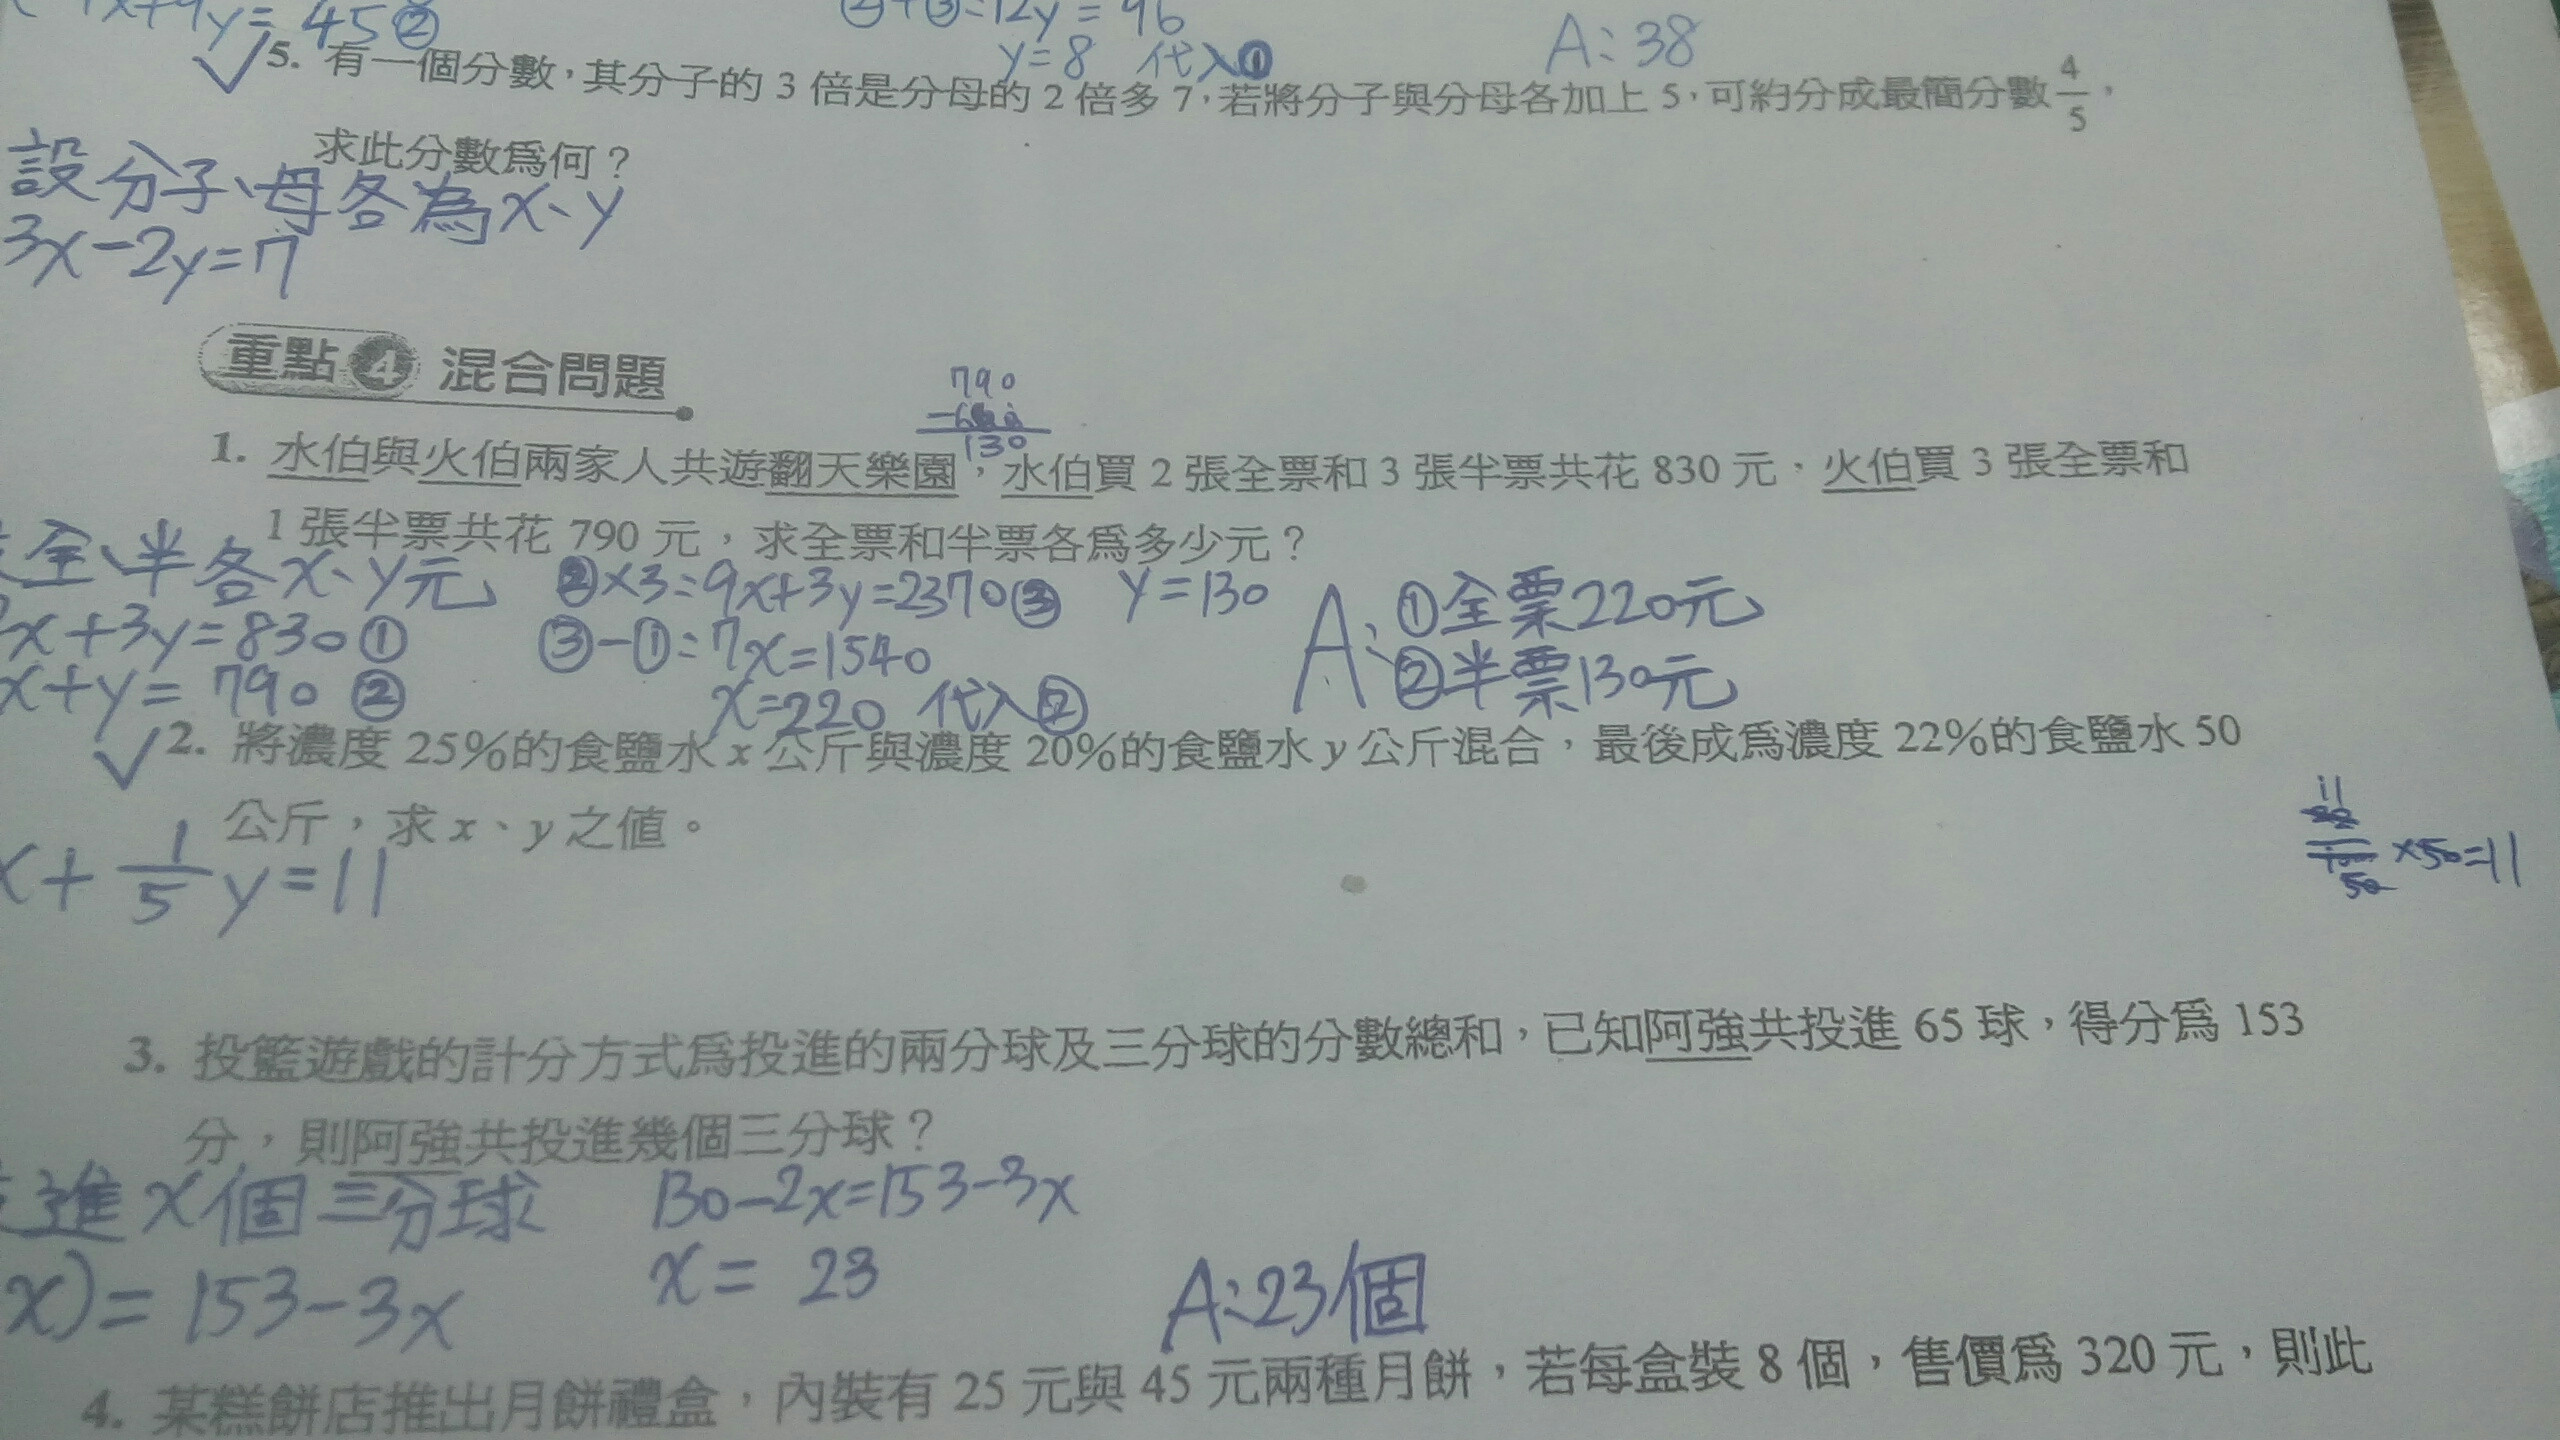 x+9y=45②
②+③=12y=96
y=8 代入①
A:38
5. 有一個分數，其分子的 3 倍是分母的 2 倍多 7，若將分子與分母各加上 5，可約分成最簡分數 4/5，
求此分數爲何？
設分子、母各為x、y
3x-2y=7
重點 4 混合問題
790
130
1. 水伯與火伯兩家人共遊翻天樂園，水伯買 2 張全票和 3 張半票共花 830 元，火伯買 3 張全票和
1 張半票共花 790 元，求全票和半票各爲多少元？
全、半各x、y元
x+3y=830①
x+y=790②
②×3=9x+3y=2370③
③-①=7x=1540
x=220 代入②
y=130
A:①全票220元
②半票130元
2. 將濃度 25%的食鹽水 x 公斤與濃度 20%的食鹽水 y 公斤混合，最後成爲濃度 22%的食鹽水 50
公斤，求 x、y 之値。
x+1/5y=11
11
×50=11
3. 投籃遊戲的計分方式爲投進的兩分球及三分球的分數總和，已知阿強共投進 65 球，得分爲 153
分，則阿強共投進幾個三分球？
進x個三分球
x)=153-3x
130-2x=153-3x
x=23
A:23個
4. 某糕餅店推出月餅禮盒，內裝有 25 元與 45 元兩種月餅，若每盒裝 8 個，售價爲 320 元，則此